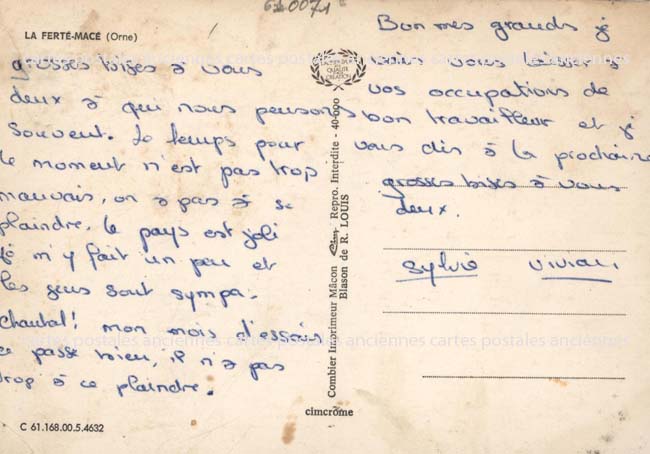 620071
LA FERTÉ-MACÉ (Orne)
grosses bises à vous
deux à qui nous pensons
souvent. le temps pour
le moment n'est pas trop
mauvais, on a pas à se
plaindre. le pays est joli
je m'y fait un peu et
les gens sont sympa.
Chantal! mon mois d'essais
ce passe bien, il n'a pas
trop à ce plaindre.
C 61.168.00.5.4632
Combier Imprimeur Mâcon Cim Repro. Interdite - 40-000
Blason de R. LOUIS
cimcrome
Bon mes grands j
vais vous laisser à
vos occupations de
bon travailleur et j
vous dis à la prochaine
grosses bises à vous
deux.
Sylvie Vivian
cartes postales anciennes cartes postales anciennes cartes postales anciennes
cartes postales anciennes cartes postales anciennes cartes postales anciennes